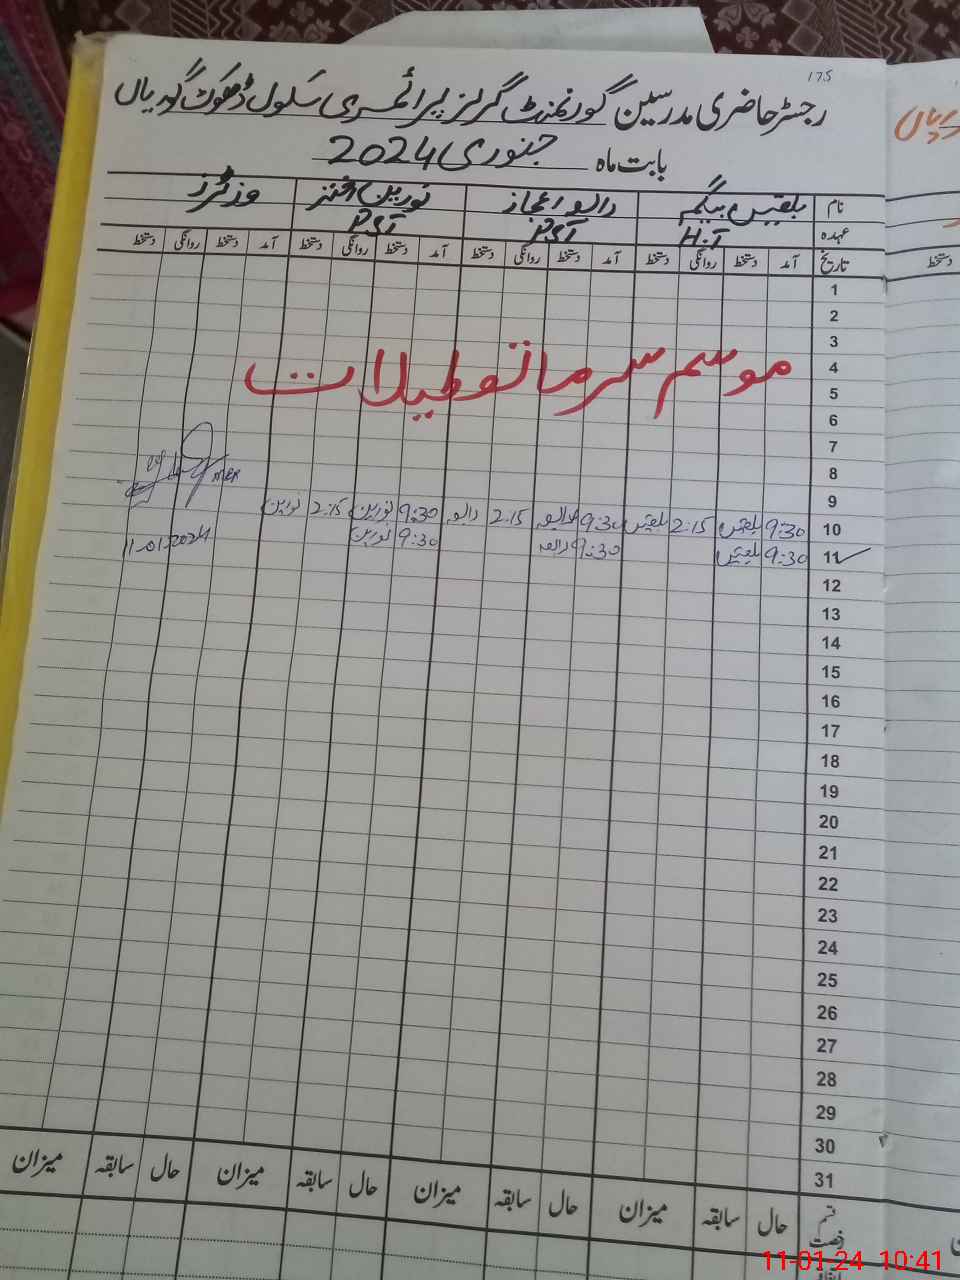 175
رجسٹر حاضری مدرسین گورنمنٹ گرلز پرائمری سکول ڈھوک گوریاں
بابت ماہ جنوری 2024
نام بلقیس بیگم رابعہ اعجاز نورین اختر وزٹرز
عہدہ H.T PST PST
تاریخ آمد دستخط روانگی دستخط آمد دستخط روانگی دستخط آمد دستخط روانگی دستخط آمد دستخط روانگی دستخط
دستخط
1
2
3
موسم سرما تعطیلات
4
5
6
7
8
9
10 9:30 بلقیس 2:15 بلقیس 9:30 رابعہ 2:15 رابعہ 9:30 نورین 2:15 نورین
11 9:30 بلقیس 9:30 رابعہ 9:30 نورین 11-01-2024
12
13
14
15
16
17
18
19
20
21
22
23
24
25
26
27
28
29
30
31
قسم رخصت حال سابقہ میزان حال سابقہ میزان حال سابقہ میزان حال سابقہ میزان
11-01-24 10:41